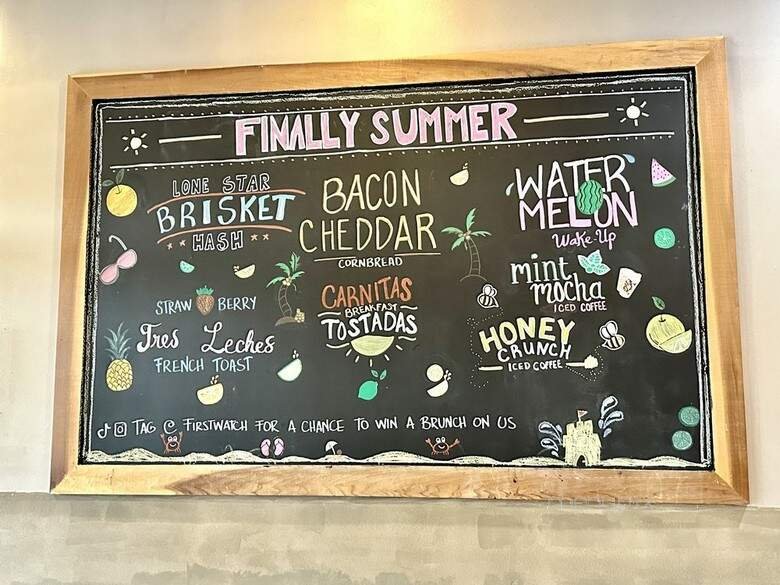 FINALLY SUMMER
LONE STAR
BRISKET
HASH
STRAW BERRY
Tres Leches
FRENCH TOAST
BACON
CHEDDAR
CORNBREAD
CARNITAS
BREAKFAST
TOSTADAS
WATER
MELON
Wake-Up
mint
mocha
ICED COFFEE
HONEY
CRUNCH
ICED COFFEE
TAG @ FIRSTWATCH FOR A CHANCE TO WIN A BRUNCH ON US